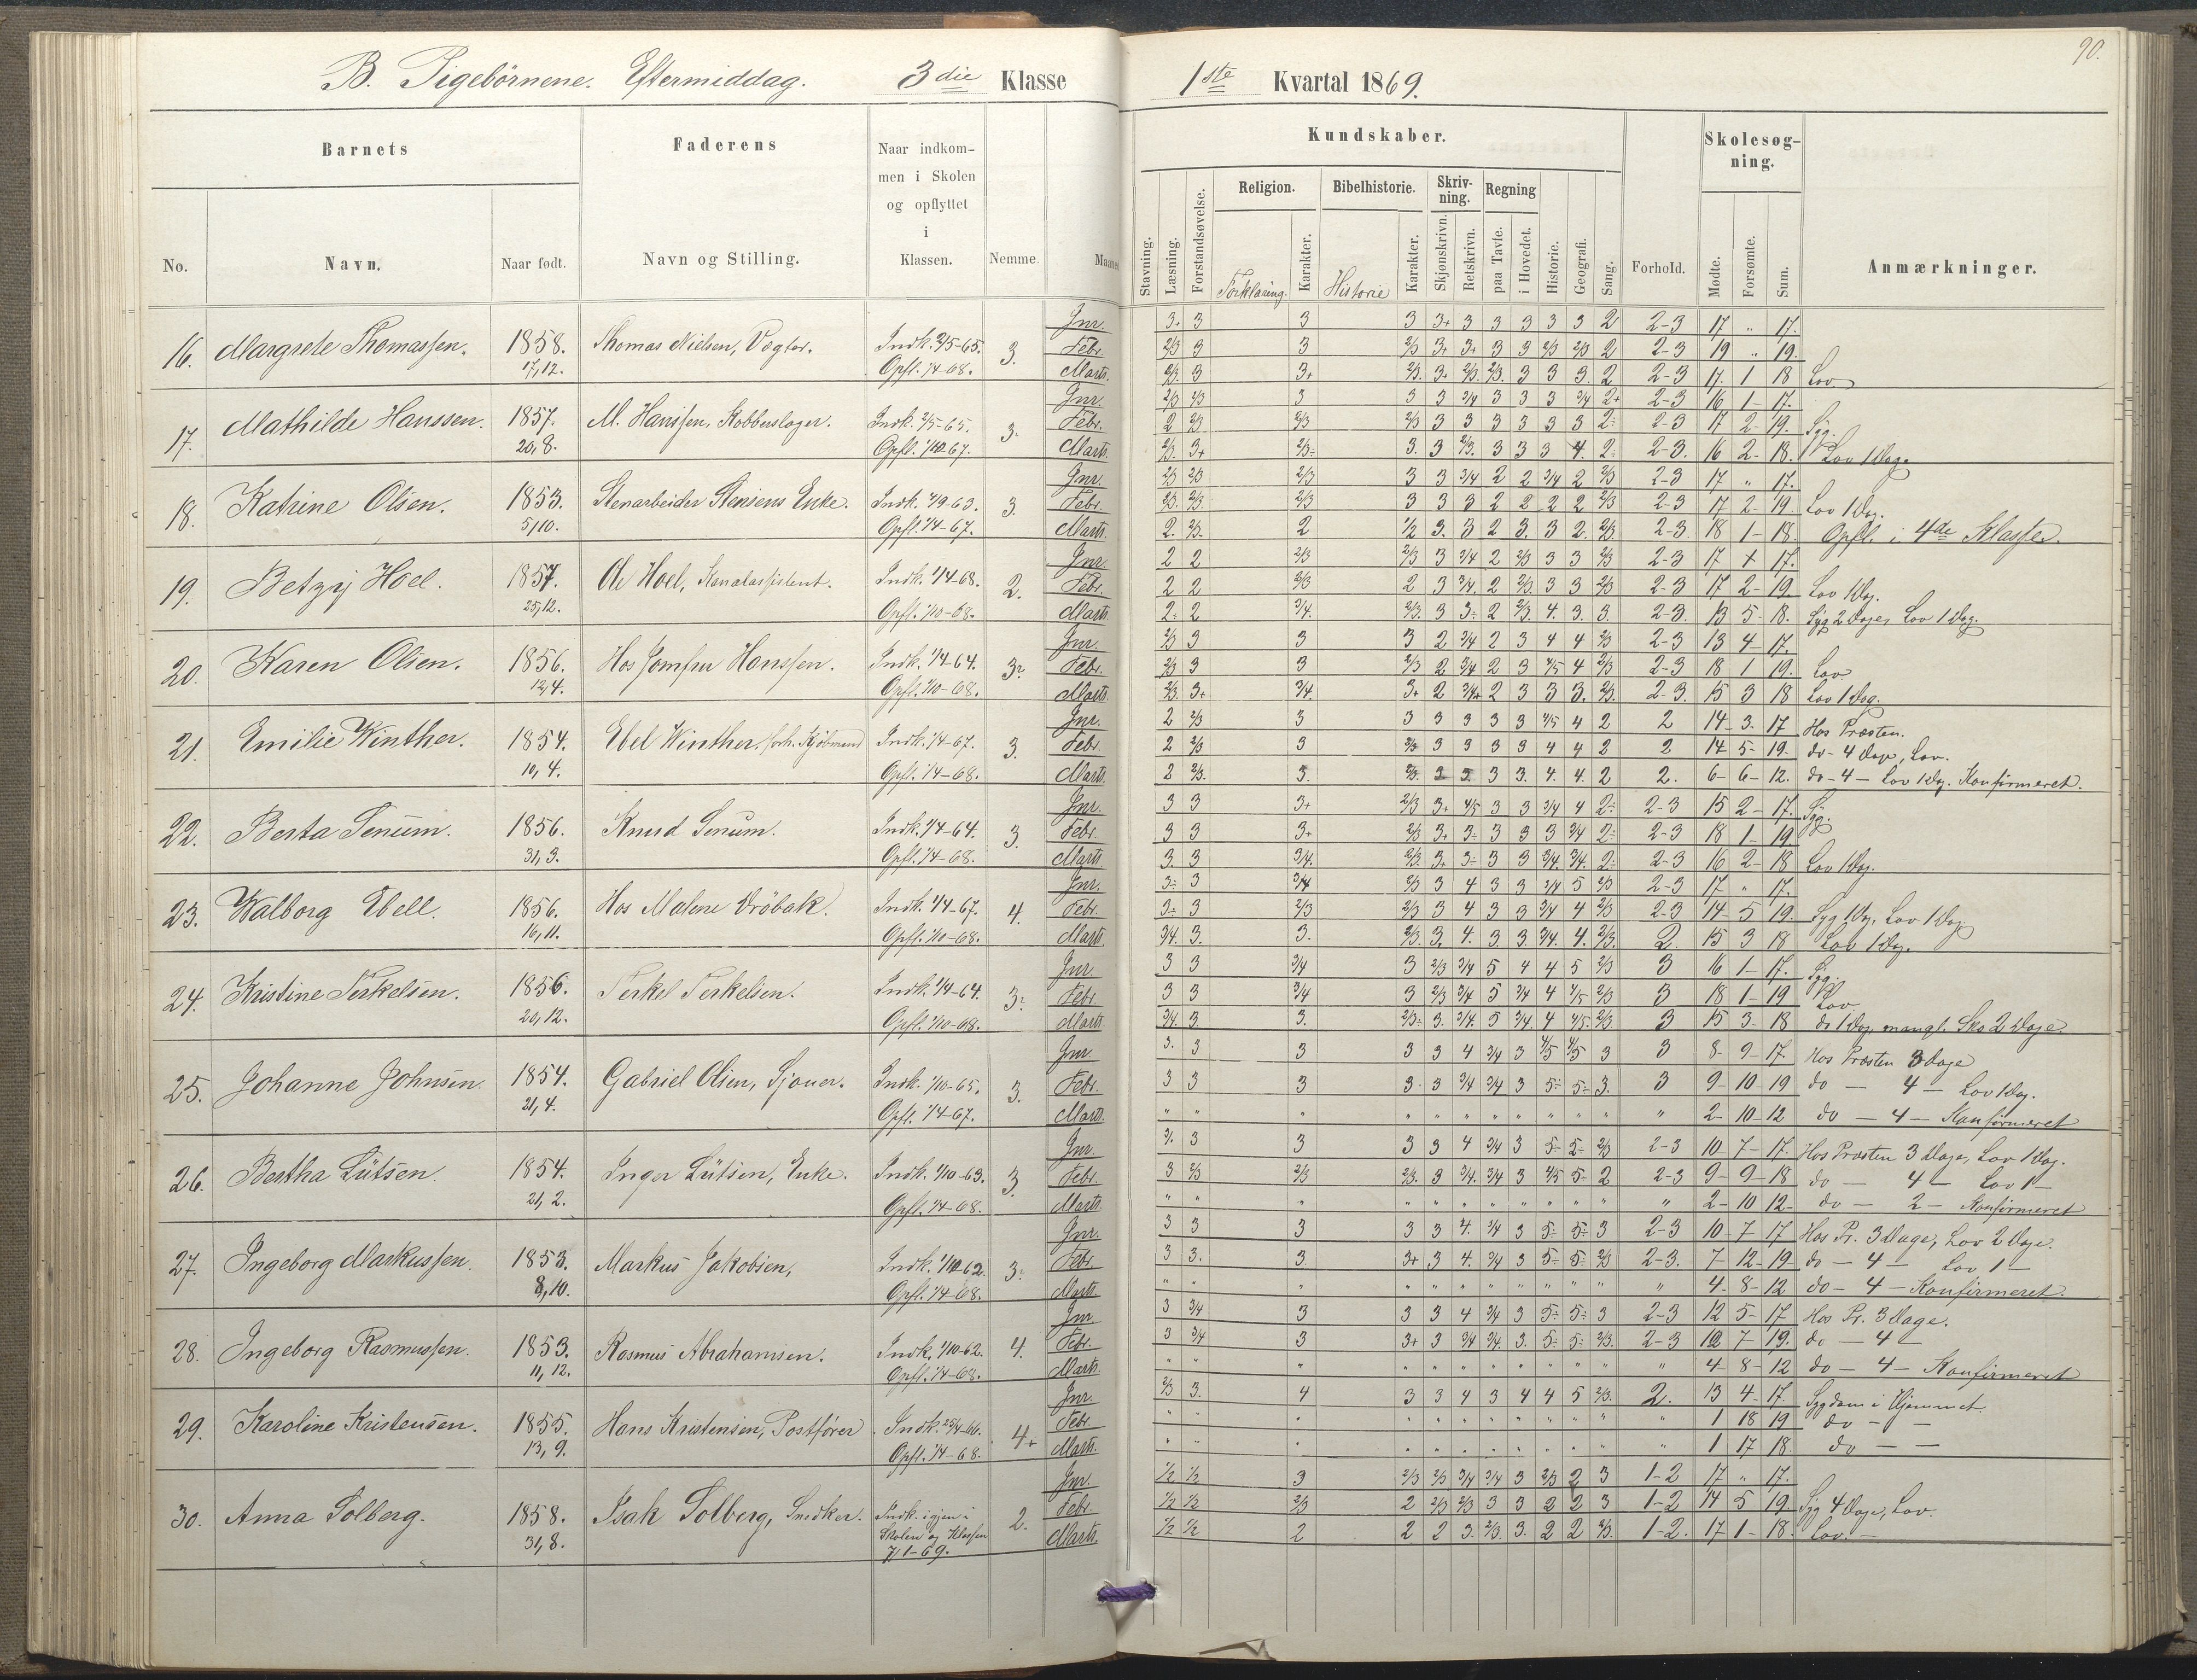 90.
B. Pigebörnene. Eftermiddag. 3die Klasse 1ste Kvartal 1869.
Barnets Faderens Naar indkommen i Skolen og opflyttet i Klassen. Nemme. Maaned
No. Navn. Naar født. Navn og Stilling.
Kundskaber. Forhold. Skolesøgning. Anmærkninger.
Stavning. Læsning. Forstandsøvelse. Religion. Forklaring. Karakter. Bibelhistorie. Historie Karakter. Skrivning. Skjønskrivn. Retskrivn. Regning paa Tavle. i Hovedet. Historie. Geografi. Sang. Mødte. Forsømte. Sum.
16. Margrete Thomassen. 1858. 17,12. Thomas Nielsen, Vægter. Indk. 2/5-65. Opfl. 1/4-68. 3.
Jnr. 3+ 3 3 3 3+ 3 3 3 3 3 2 2-3 17 " 17.
Febr. 2/3 3 3 2/3 3+ 3+ 3 3 2/3 2/3 2 2-3 19 " 19.
Marts. 2/3. 3 3+ 2/3. 3+ 2/3. 2/3. 3 3 3. 2 2-3 17. 1 18 Lov
17. Mathilde Hanssen. 1857. 20,8. M. Hanssen, Kobberslager. Indk. 2/5-65. Opfl. 1/10-67. 3.
Jnr. 2/3 2/3 3 3 3 3/4 3 3 3 3/4 2+ 2-3 16 1- 17.
Febr. 2 2/3 2/3 2/3 3 3 3 3 3 3 2- 2-3 17 2- 19. Syg.
Marts. 2/3. 3+ 2/3- 3. 3 2/3. 3 3 3 4. 2 2-3. 16 2- 18. Lov 1 Dag.
18. Katrine Olsen. 1853. 5,10. Stenarbeider Stensens Enke. Indk. 1/9-63. Opfl. 1/4-67. 3.
Jnr. 2/3 2/3 2/3 3 3 3/4 2 2 3/4 2 2/3 2-3 17 " 17.
Febr. 2/3. 2/3. 2/3 3 3 3 2 2 2 2 2/3 2-3 17 2- 19 Lov 1 Dag.
Marts. 2. 2/3. 2 1/2 3. 3 2 3. 3 2. 2/3 2-3 18 1- 18. Opfl. i 4de Klasse.
19. Betzy Hoel. 1857. 25,12. Ole Hoel, Kanalassistent. Indk. 1/4-68. Opfl. 1/10-68. 2.
Jnr. 2 2 2/3 2/3 3 3/4 2 2/3 3 3 2/3 2-3 17 + 17.
Febr. 2 2 2/3 2 3 3/4. 2 2/3 3 3 2/3 2-3 17 2- 19. Lov 1 Dag.
Marts. 2- 2 3/4. 2/3. 3 3- 2 2/3. 4. 3. 3 2-3. 13 5- 18. Syg 2 Dage, Lov 1 Dag.
20. Karen Olsen. 1856. 12,4. Hos Jomfru Hanssen. Indk. 1/4-64. Opfl. 1/10-68. 3-
Jnr. 2/3 3 3 3 2 3/4 2 3 4 4 2/3 2-3 13 4- 17.
Febr. 2/3 3 3 2/3 2 3/4 2 3 4/5 4 2/3 2-3 18 1 19. Lov
Marts 2/3. 3+ 3/4. 3+ 2 3/4+ 2 3 3 3. 2/3. 2-3. 15 3 18 Lov 1 Dag.
21. Emilie Winther. 1854. 10,4. Ebel Winther, forh. Kjöbmand Indk. 1/4-67. Opfl. 1/4-68. 3.
Jnr. 2 2/3 3 3 3 3 3 3 4/5 4 2 2 14 3. 17 Hos Præsten.
Febr. 2 2/3 3 2/3 3 3 3 3 4 4 2 2 14 5- 19. do- 4 Dage, Lov.
Marts. 2 2/3. 3. 2/3. 3 3 3 3. 4. 4. 2 2. 6- 6- 12. do- 4 - Lov 1 Dag. Konfirmeret.
22. Berta Senum. 1856. 31,3. Knud Senum. Indk. 1/4-64. Opfl. 1/4-68. 3.
Jnr. 3 3 3+ 2/3 3+ 4/5 3 3 3/4 4 2- 2-3 15 2- 17. Syg.
Febr. 3 3 3+ 2/3 3+ 3- 3 3 3 3/4 2- 2-3 18 1- 19
Marts. 3. 3 3/4. 2/3. 3+ 3- 3 3 3/4. 3/4. 2- 2-3 16 2- 18 Lov 1 Dag.
23. Walborg Ebell. 1856. 16,11. Hos Malene Dröbak. Indk. 1/4-67. Opfl. 1/10-68. 4.
Jnr. 3- 3 3/4 2/3 3 4 3 3 3/4 5 2/3 2-3 17 " 17.
Febr. 3- 3 2/3 2/3 3 4 3 3 3/4 4 2/3 2-3 14 5 19. Syg 1 Dag, Lov 1 Dag
Marts. 3/4. 3. 3. 2/3. 3. 4. 3 3. 3/4. 4. 2/3. 2. 15 3 18 Lov 1 Dag.
24. Kristine Terkelsen. 1856. 20,12. Terkel Terkelsen. Indk. 1/4-64. Opfl. 1/10-68. 3-
Jnr. 3 3 3/4 3 2/3 3/4 5 4 4 5 2/3 3 16 1- 17. Syg.
Febr. 3 3 3/4 3 2/3 3/4 5 3/4 4 4/5 2/3 3 18 1- 19 Lov
Marts. 3/4. 3 3. 2/3- 3. 3/4. 5 3/4. 4 4/5. 2/3 3 15 3- 18 do 1 Dag, mangl. Sko 2 Dage.
25. Johanne Johnsen. 1854. 21,4. Gabriel Olsen, Sjouer. Indk. 1/10-65. Opfl. 1/4-67. 3.
Jnr. 3. 3 3 3 3 4 3/4 3 4/5 4/5 3 3 8- 9- 17. Hos Præsten 3 Dage
Febr. 3 3 3 3- 3 3/4 3/4 3 5- 5- 3. 3 9- 10- 19 do - 4 - Lov 1 Dag.
Marts. " " " " " " " " " " " " 2- 10- 12 do - 4 - Konfirmeret
26. Bertha Lütsen. 1854. 21,2. Inger Lütsen, Enke. Indk. 1/10-63. Opfl. 1/4-68. 3.
Jnr. 3/. 3 3 3 3 4 3/4 3 5- 5- 2/3 2-3 10 7- 17. Hos Præsten 3 Dage, Lov 1 Dag.
Febr. 3 2/3 2/3 2/3. 3 3/4. 3/4 3 4/5 5- 2 2-3 9- 9- 18 do - 4 - Lov 1 -
Marts " " " " " " " " " " " " 2- 10 12- do - 2 - Konfirmeret
27. Ingeborg Markussen. 1853. 8,10. Markus Jakobsen, Indk. 1/10 62. Opfl. 1/4-68. 3-
Jnr. 3 3 3 3 3 4. 3/4 3 5- 5- 3 2-3 10 7 17 Hos Pr. 3 Dage, Lov 2 Dage.
Febr. 3 3. 3. 3+ 3 4. 3/4 3 5- 5- 2/3 2-3. 7- 12- 19 do - 4 - Lov 1 -
Marts. " " " " " " " " " " " " 4- 8- 12 do - 4 - Konfirmeret.
28. Ingeborg Rasmussen. 1853. 11,12. Rasmus Abrahamsen. Indk. 1/10-62. Opfl. 1/4-68. 4.
Jnr. 3 3/4 3 3 3 4 3/4 3 5- 5- 3 2-3 12 5- 17 Hos Pr. 3 Dage.
Febr. 3 3/4 3 3+ 3 3/4 3/4. 3. 5- 5- 2/3. 2-3 12 7 19. do - 4 -
Marts. " " " " " " " " " " " " 4- 8- 12 do - 4 - Konfirmeret
29. Karoline Kristensen. 1855. 13,9. Hans Kristensen, Postfører. Indk. 25/4-66. Opfl. 1/4-68. 4+
Jnr. 2/3 3. 4 3 3 4 3 4 4 5 2/3. 2. 13 4- 17. Sygdom i Hjemmet.
Febr. " " " " " " " " " " " " 1 18 19 do - -
Marts. " " " " " " " " " " " " 1 17 18. do - -
30. Anna Solberg. 1858. 31,8. Isak Solberg, Snedker. Indk. igjen i Skolen og Klassen 7/1-69. 2.
Jnr. 1/2 1/2 3 2/3 2/3 3/4 3/4 3 2/3 2 3 1-2 17 " 17.
Febr. 1/2 1/2 2/3 2 2/3 2/3 3 3 2 2 3 1-2 14 5 19 Syg 4 Dage, Lov.
Marts. 1/2 1/2 2 2 2 3. 2/3. 3. 2 2 2/3. 1-2. 17 1- 18. Lov. -